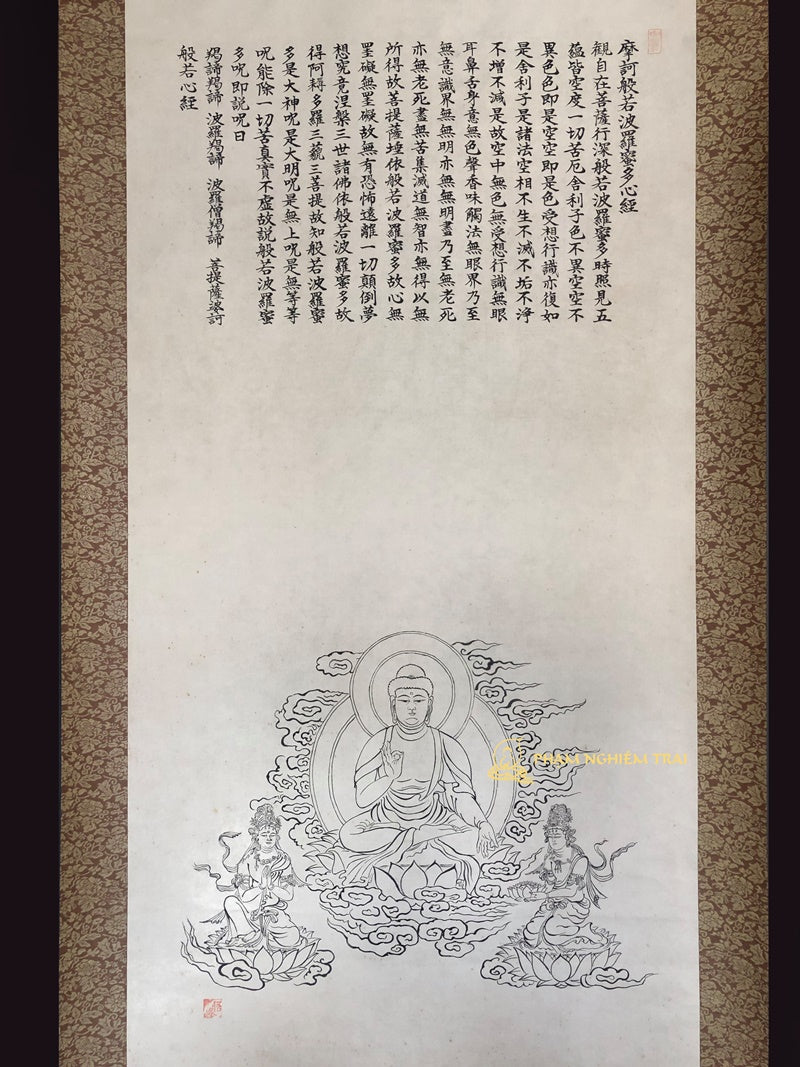 摩訶般若波羅蜜多心經
觀自在菩薩行深般若波羅蜜多時照見五
蘊皆空度一切苦厄舍利子色不異空空不
異色色即是空空即是色受想行識亦復如
是舍利子是諸法空相不生不滅不垢不淨
不增不減是故空中無色無受想行識無眼
耳鼻舌身意無色聲香味觸法無眼界乃至
無意識界無無明亦無無明盡乃至無老死
亦無老死盡無苦集滅道無智亦無得以無
所得故菩提薩埵依般若波羅蜜多故心無
罣礙無罣礙故無有恐怖遠離一切顛倒夢
想究竟涅槃三世諸佛依般若波羅蜜多故
得阿耨多羅三藐三菩提故知般若波羅蜜
多是大神呪是大明呪是無上呪是無等等
呪能除一切苦真實不虛故説般若波羅蜜
多呪即説呪曰
羯諦羯諦 波羅羯諦 波羅僧羯諦 菩提薩婆訶
般若心經
PHẠM NGHIÊM TRAI